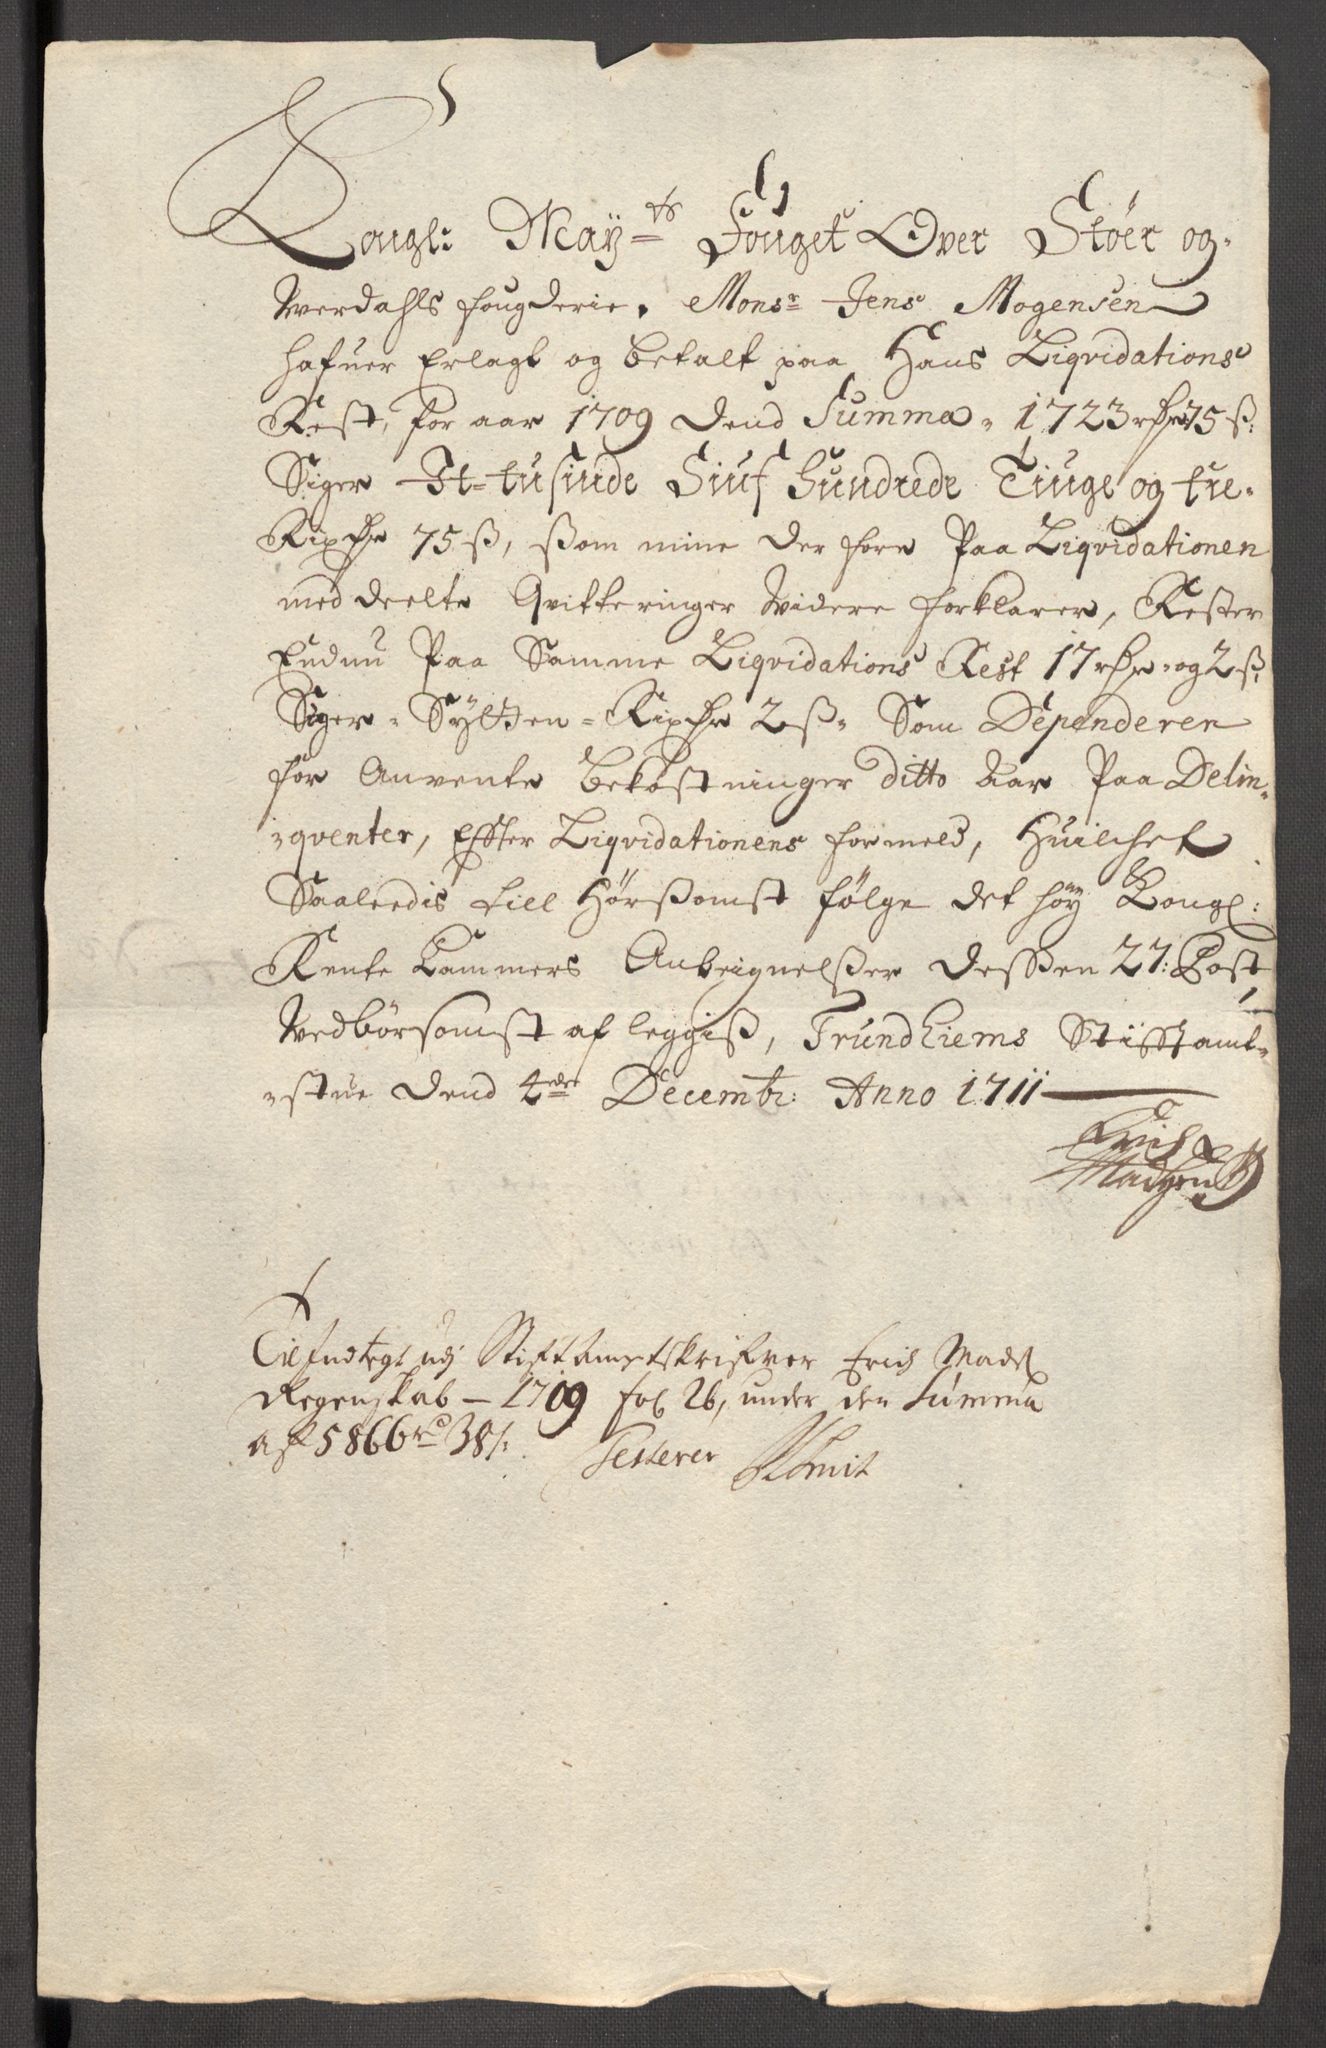 Kongl: Mayts Fouget Over Støer og
Werdahls fougderie, Monsr Jens Mogensen
hafuer Erlagt og betalt paa Hans Liqvidations
Rest, for aar 1709 dend Summa, 1723 rdr 75 ß:
Siger Et-tusinde Siuf hundrede Tiuge og tre-
Rixdr 75 ß, ßom mine der fore Paa Liqvidationen
meddeelte Qvitteringer Widere forklarer, Rester
Endnu Paa Samme Liqvidations Rest 17 rdr: og 2 ß,
Siger- Sytten- Rixdr 2 ß, Som Dependerer
for Anvente bekostninger ditto Aar Paa Delin-
qventer, Effter Liqvidationens formeld, Huilchet
Saaleedis till Hørßomst følge det höÿ Kongl:
Rente Cammers Anteignelßer dessen 27: Post,
Vedbørsomst af leggiß, Trundhiems Stifftamt-
stue Dend 4de Decembr: Anno 1711
Erich
Madsen
Tilfindtegt udj Stiftamtskrifver Erich Madß
Regenskab - 1709 fol 26, under den Summa
af 5866 rd 38 ß:
Testerer Smit